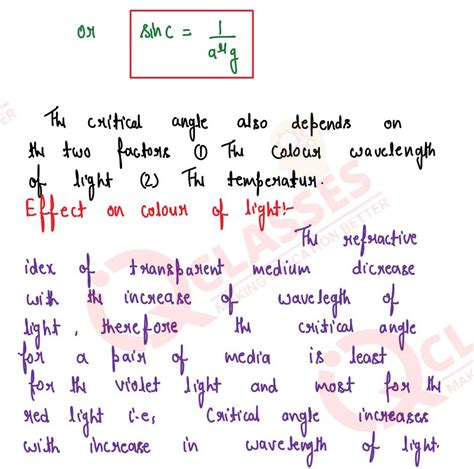 or sin C = 1 / aμg
The critical angle also depends on
the two factors ① The Colour wavelength
of light (2) The temperatur.
Effect on colour of light:-
The refractive
idex of transparent medium dicrease
with the increase of wavelegth of
light, therefore the critical angle
for a pair of media is least
for the violet light and most for the
red light i.e, Critical angle increases
with increase in wavelength of light.
CLASSES
MAKING EDUCATION BETTER